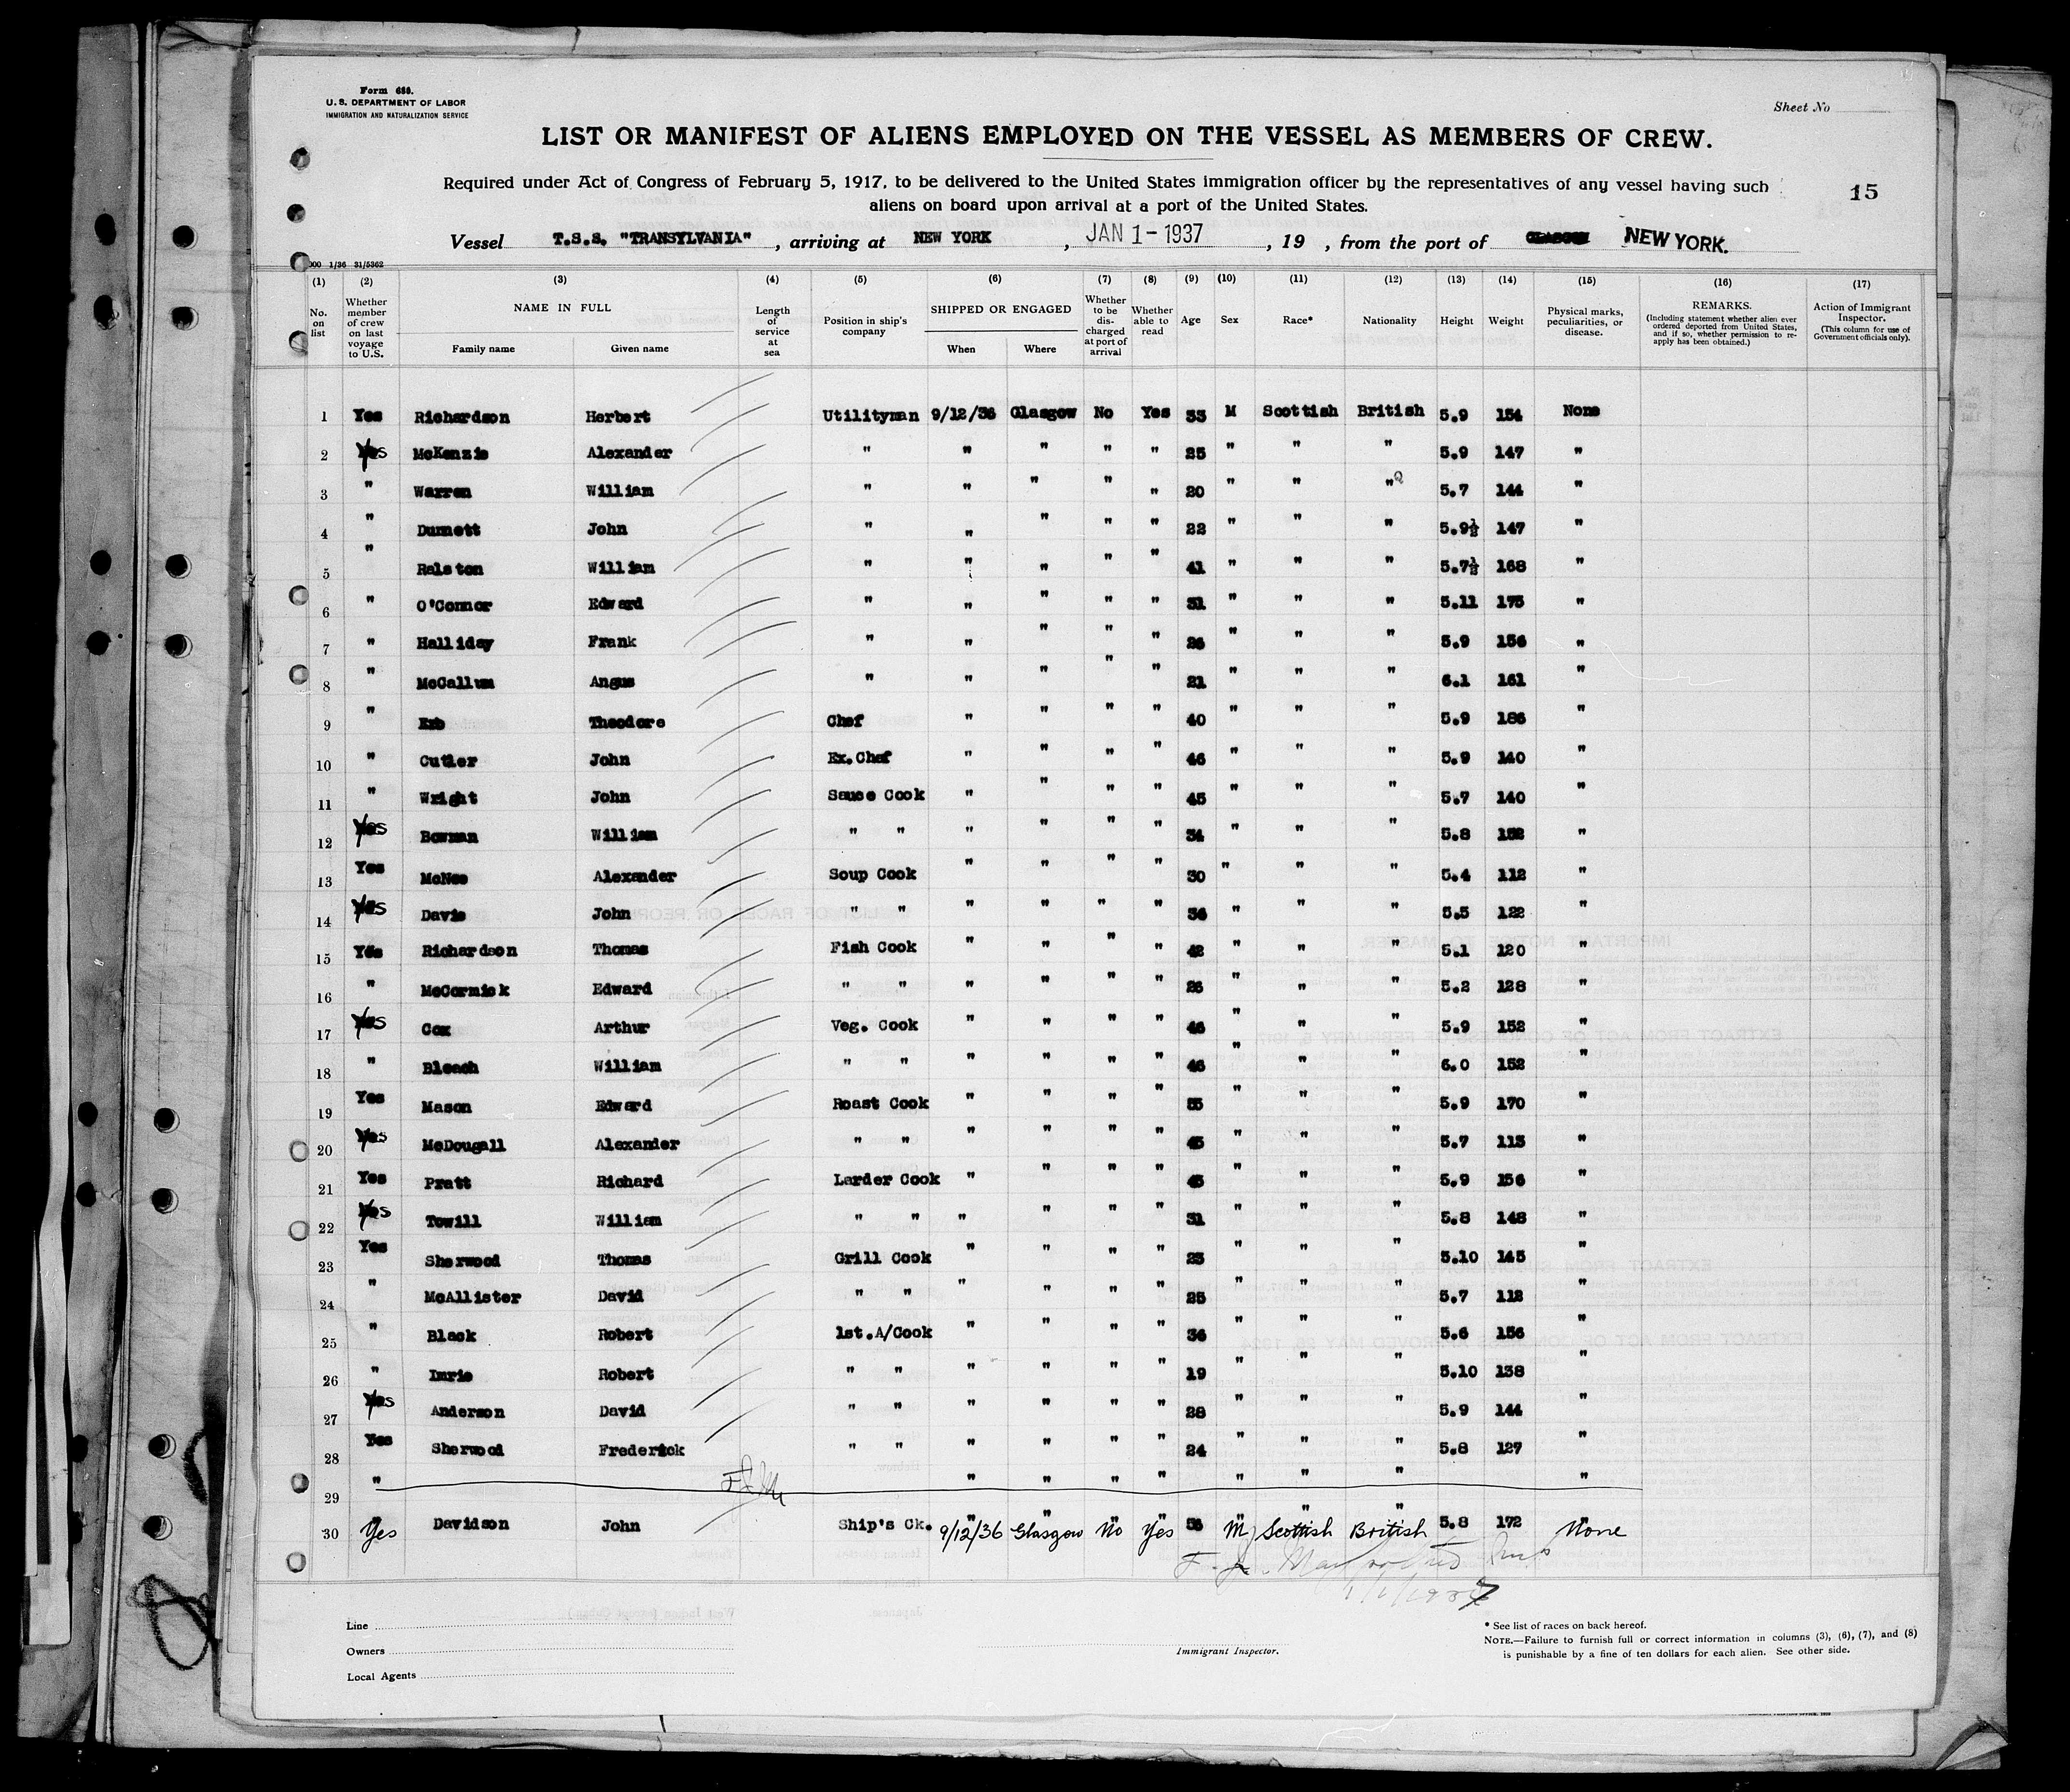 Form 680.
U. S. DEPARTMENT OF LABOR
IMMIGRATION AND NATURALIZATION SERVICE
Sheet No
LIST OR MANIFEST OF ALIENS EMPLOYED ON THE VESSEL AS MEMBERS OF CREW.
Required under Act of Congress of February 5, 1917, to be delivered to the United States immigration officer by the representatives of any vessel having such
aliens on board upon arrival at a port of the United States.
15
Vessel T.S.S. "TRANSYLVANIA", arriving at NEW YORK, JAN 1 - 1937, 19 , from the port of NEW YORK.
000 1/36 31/5362
(1) (2) (3) (4) (5) (6) (7) (8) (9) (10) (11) (12) (13) (14) (15) (16) (17)
No. on list
Whether member of crew on last voyage to U.S.
NAME IN FULL
Family name
Given name
Length of service at sea
Position in ship's company
SHIPPED OR ENGAGED
When
Where
Whether to be discharged at port of arrival
Whether able to read
Age
Sex
Race*
Nationality
Height
Weight
Physical marks, peculiarities, or disease.
REMARKS.
(Including statement whether alien ever ordered deported from United States, and if so, whether permission to reapply has been obtained.)
Action of Immigrant Inspector.
(This column for use of Government officials only).
1 Yes Richardson Herbert Utilityman 9/12/36 Glasgow No Yes 33 M Scottish British 5.9 154 None
2 Yes McKenzie Alexander " " " " " 25 " " " 5.9 147 "
3 " Warren William " " " " " 20 " " " 5.7 144 "
4 " Dunnett John " " " " " 22 " " " 5.9½ 147 "
5 " Ralston William " " " " " 41 " " " 5.7½ 168 "
6 " O'Connor Edward " " " " " 31 " " " 5.11 175 "
7 " Halliday Frank " " " " " 26 " " " 5.9 156 "
8 " McCallum Angus " " " " " 21 " " " 6.1 161 "
9 " Erb Theodore Chef " " " " 40 " " " 5.9 186 "
10 " Cutler John Ex.Chef " " " " 46 " " " 5.9 140 "
11 " Wright John Sauce Cook " " " " 45 " " " 5.7 140 "
12 Yes Bowman William " " " " " " 34 " " " 5.8 152 "
13 Yes McNee Alexander Soup Cook " " " " 30 " " " 5.4 112 "
14 Yes Davie John " " " " " " 36 " " " 5.5 122 "
15 Yes Richardson Thomas Fish Cook " " " " 42 " " " 5.1 120 "
16 " McCormick Edward " " " " " " 26 " " " 5.2 128 "
17 Yes Cox Arthur Veg. Cook " " " " 46 " " " 5.9 152 "
18 " Bleach William " " " " " " 46 " " " 6.0 152 "
19 Yes Mason Edward Roast Cook " " " " 55 " " " 5.9 170 "
20 Yes McDougall Alexander " " " " " " 45 " " " 5.7 113 "
21 Yes Pratt Richard Larder Cook " " " " 45 " " " 5.9 156 "
22 Yes Towill William " " " " " " 31 " " " 5.8 148 "
23 Yes Sherwood Thomas Grill Cook " " " " 23 " " " 5.10 145 "
24 " McAllister David " " " " " " 25 " " " 5.7 112 "
25 " Black Robert 1st.A/Cook " " " " 36 " " " 5.6 156 "
26 " Imrie Robert " " " " " " 19 " " " 5.10 138 "
27 Yes Anderson David " " " " " " 28 " " " 5.9 144 "
28 Yes Sherwood Frederick " " " " " " 24 " " " 5.8 127 "
29 " " " " " " " " "
30 Yes Davidson John Ship's Ck. 9/12/36 Glasgow No Yes 56 M Scottish British 5.8 172 None
1/1/1937
Line
Owners
Local Agents
Immigrant Inspector.
* See list of races on back hereof.
NOTE.—Failure to furnish full or correct information in columns (3), (6), (7), and (8)
is punishable by a fine of ten dollars for each alien. See other side.